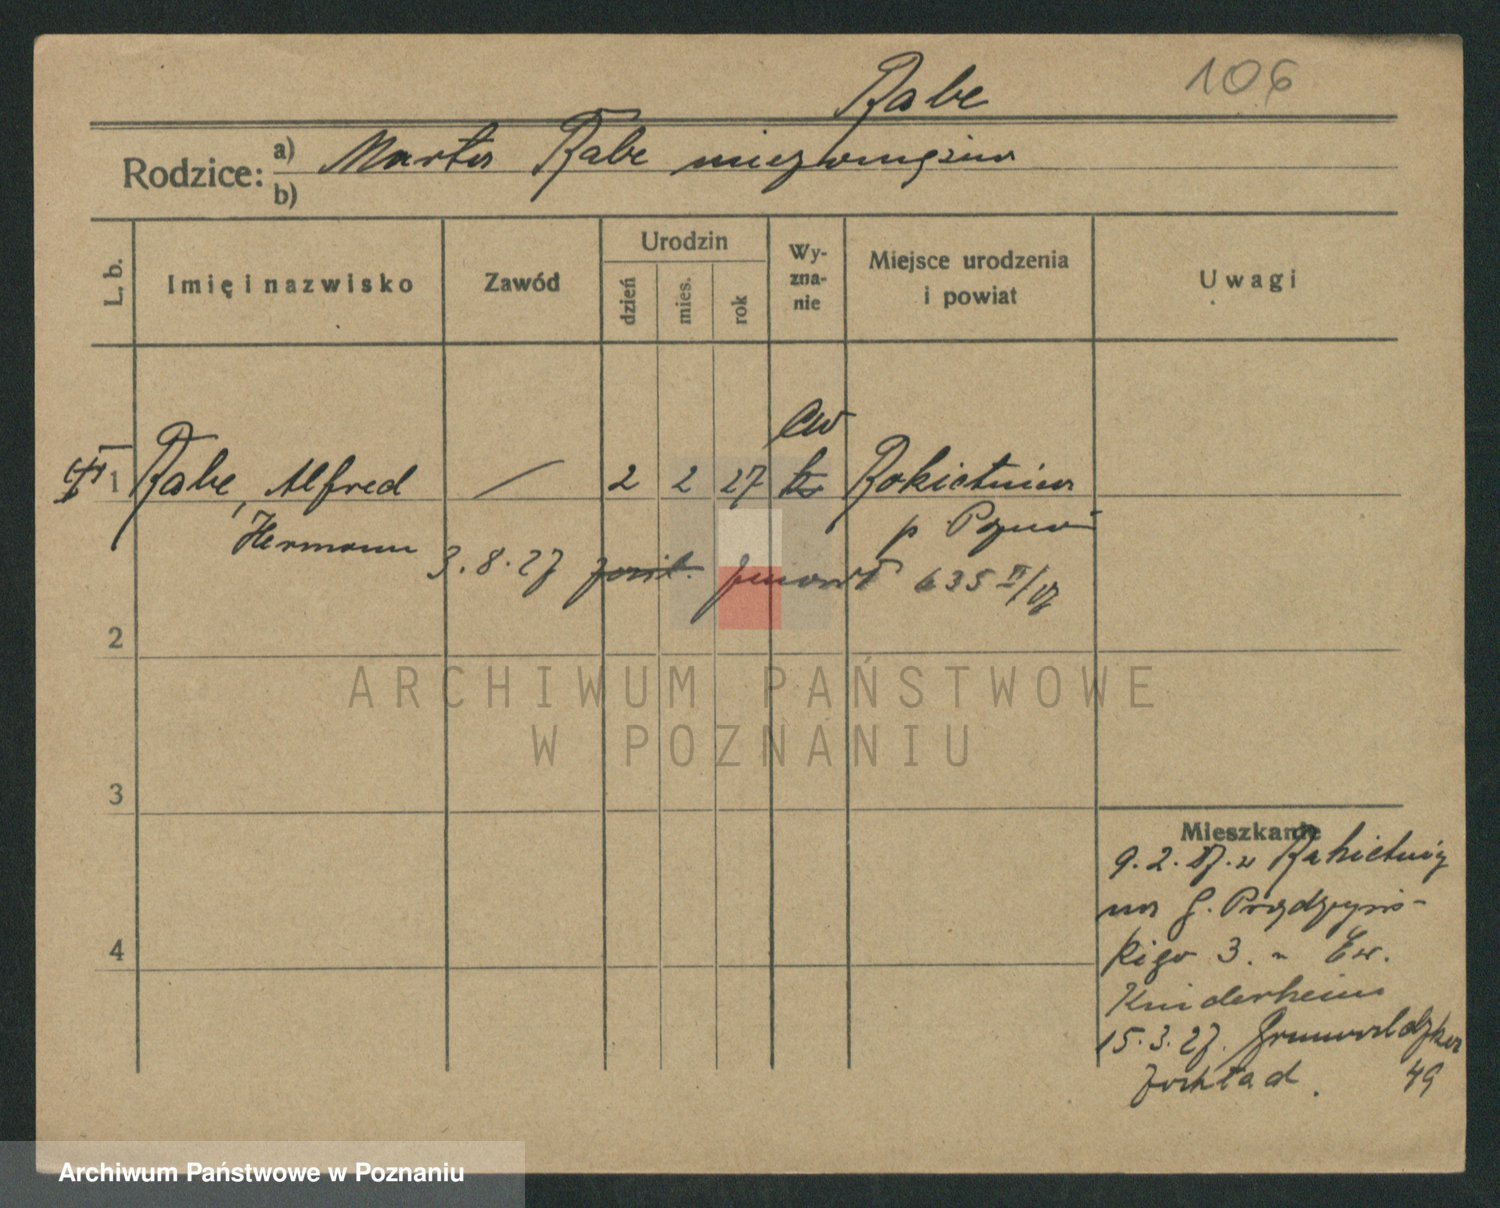 Rabe
106
Rodzice: a) Marta Rabe niezamężna
b)
L. b. Imię i nazwisko Zawód Urodzin dzień mies. rok Wyzna-nie Miejsce urodzenia i powiat Uwagi
ew
1 Rabe, Alfred — 2 2 27 Rokietnica
Hermann p Poznań
3.8.27 zmarł 635 II/27
2
3
4
Mieszkanie
9.2.27. z Rokietnicy
na
3. Ew.
Kinderheim
15.3.27. Grunwaldzka
zakład 49
ARCHIWUM PAŃSTWOWE
W POZNANIU
Archiwum Państwowe w Poznaniu